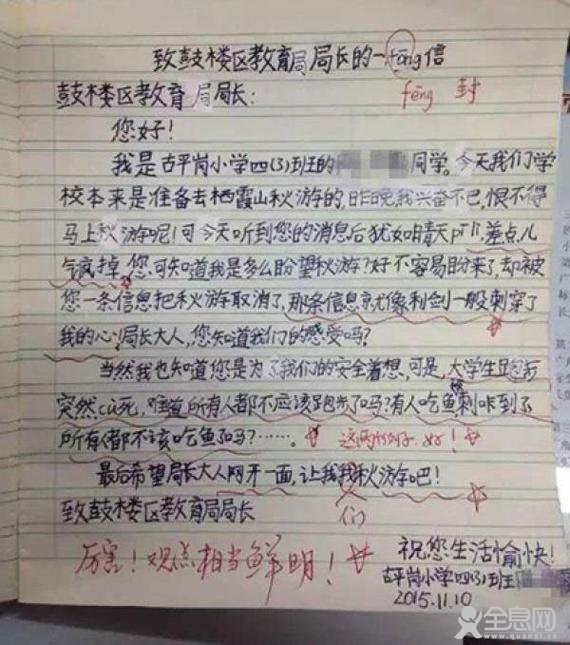 致鼓楼区教育局局长的一fēng信
鼓楼区教育局局长:
fēng 封
您好!
我是古平岗小学四(3)班的 同学。今天我们学
校本来是准备去栖霞山秋游的,昨晚,我兴奋不已,恨不得
马上秋游呢!可今天听到您的消息后犹如晴天pī lì,差点儿
气疯掉。您可知道我是多么盼望秋游?好不容易盼来了,却被
您一条信息把秋游取消了,那条信息就像利剑一般刺穿了
我的心!局长大人,您知道我们的感受吗?
当然我也知道您是为了我们的安全着想,可是,大学生跑步
突然cù死,难道所有人都不应该跑步了吗?有人吃鱼刺咔到了
所有人都不该吃鱼了吗?……。
这两个例子,好!
最后希望局长大人网开一面,让我我秋游吧!
们
致鼓楼区教育局局长
厉害!观点相当鲜明!
祝您生活愉快!
古平岗小学四(3)班
2015.11.10
全息网
www.quanxi.cc